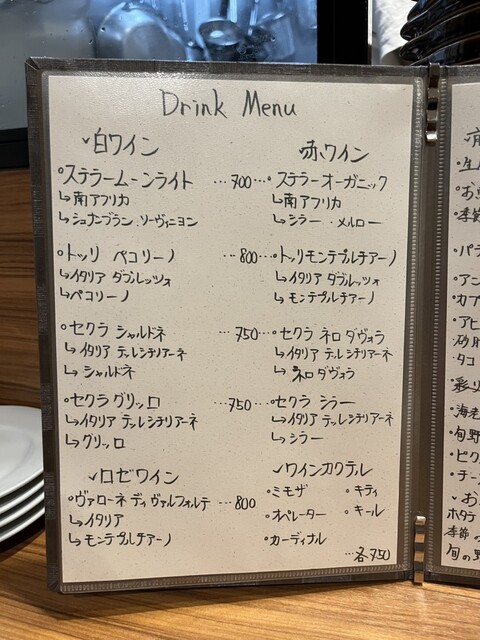 Drink Menu
✓白ワイン
°ステラームーンライト …700…
↳南アフリカ
↳シュナンブラン、ソーヴィニヨン
°トッリ ペコリーノ …800…
↳イタリア ダブルッツォ
↳ペコリーノ
°セクラ シャルドネ …750…
↳イタリア テッレシチリアーネ
↳シャルドネ
°セクラグリッロ …750…
↳イタリア テッレシチリアーネ
↳グリッロ
✓ロゼワイン
°ヴァローネ ディ ヴァルフォルテ …800
↳イタリア
↳モンテプルチアーノ
赤ワイン
°ステラーオーガニック
↳南アフリカ
↳シラー・メルロー
°トッリモンテプルチアーノ
↳イタリア ダブルッツォ
↳モンテプルチアーノ
°セクラ ネロ ダヴォラ
↳イタリア テッレシチリアーネ
↳ネロダヴォラ
°セクラ シラー
↳イタリア テッレシチリアーネ
↳シラー
✓ワインカクテル
°ミモザ °キティ
°オペレーター °キール
°カーディナル
…各750
°生
°お
°季節
°パ
°アン
°カプ
°アヒ
砂肝
タコ
彩り
°海老
°旬野
°ピク
°チー
✓お
ホタテ
季節の
旬の野